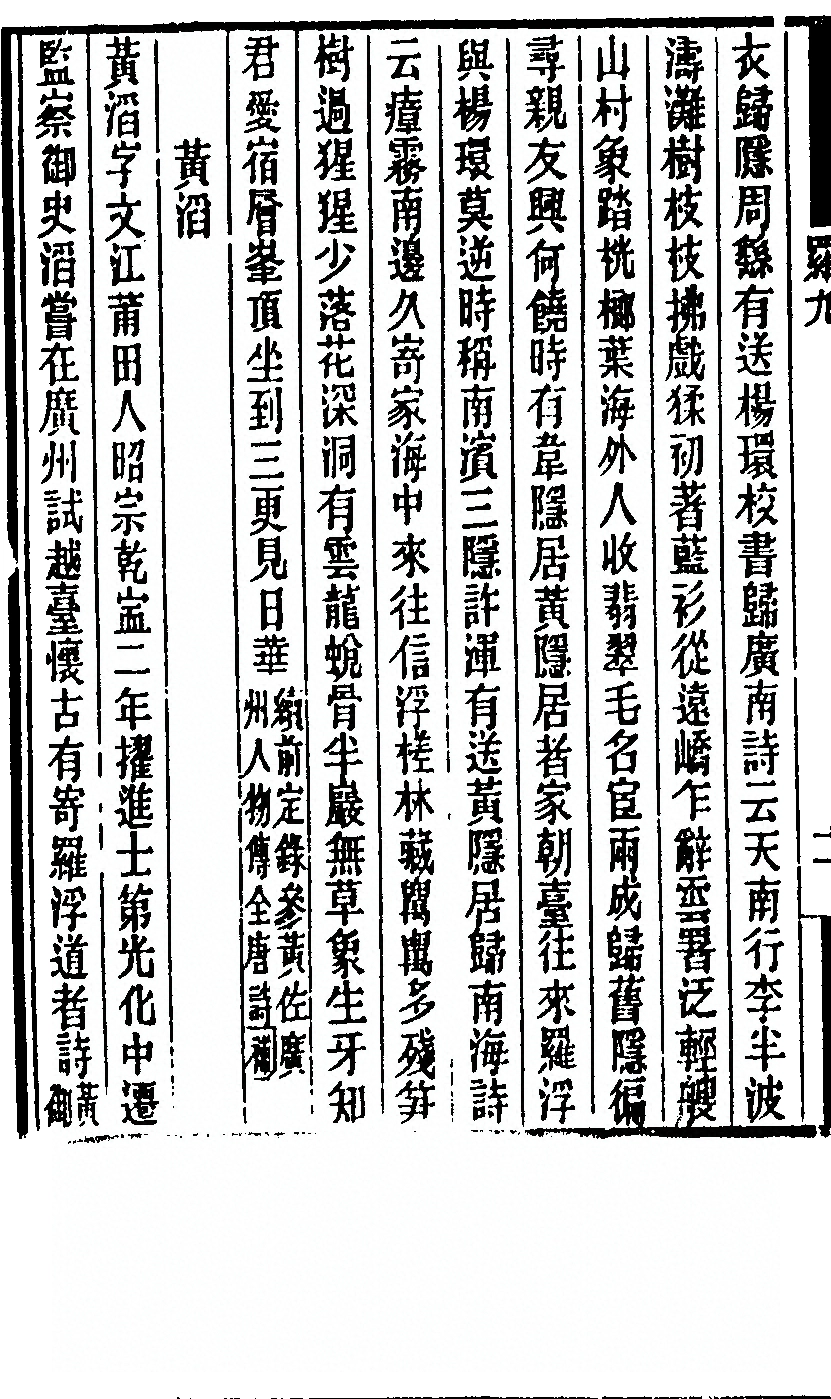 羅九
二
衣歸隱周繇有送楊環校書歸廣南詩云天南行李半波
濤灘樹枝枝拂戲猱初著藍衫從遠嶠乍辭雲署泛輕艘
山村象踏桄榔葉海外人收翡翠毛名宦兩成歸舊隱徧
尋親友興何饒時有韋隱居黃隱居者家朝臺往來羅浮
與楊環莫逆時稱南濱三隱許渾有送黃隱居歸南海詩
云瘴霧南邊久寄家海中來往信浮槎林藏䍺䍺多殘笋
樹過猩猩少落花深洞有雲龍蛻骨半巖無草象生牙知
君愛宿層峯頂坐到三更見日華續前定錄參黃佐廣州人物傳全唐詩補
黃滔
黃滔字文江莆田人昭宗乾寍二年擢進士第光化中遷
監察御史滔嘗在廣州試越臺懷古有寄羅浮道者詩黃御